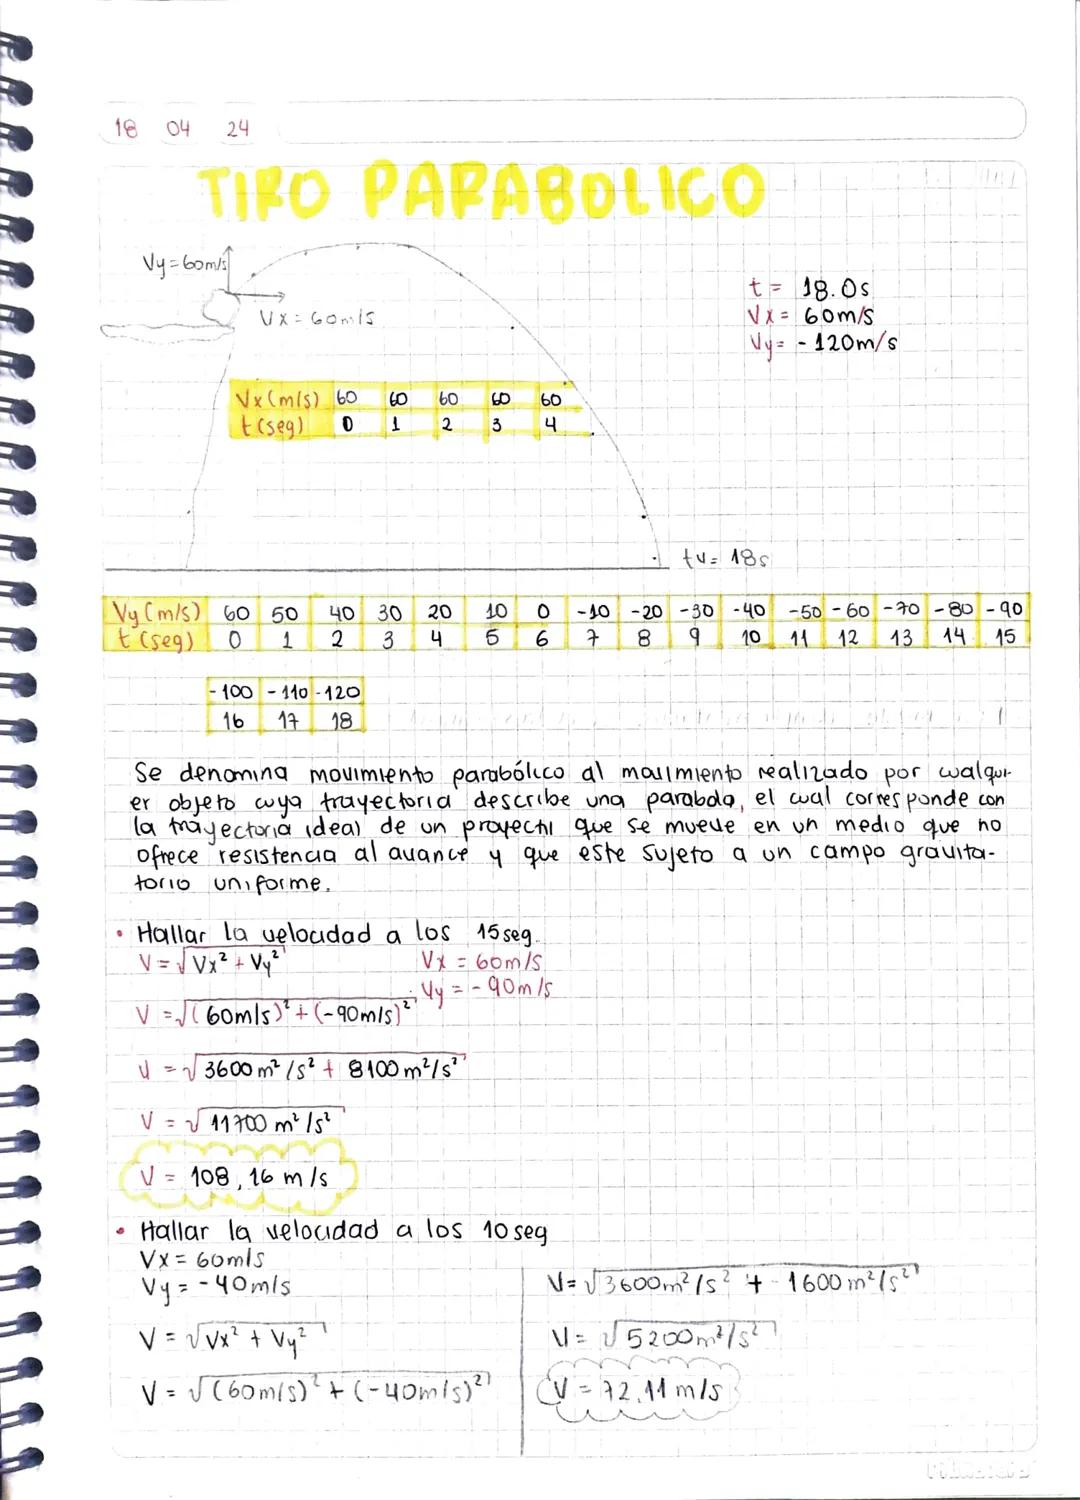 18 04 24
TIRO PARABOLICO
Vy=60m/s
Vx=60m/s
t= 18.0s
Vx= 60m/s
Vy= -120m/s
Vx(m/s) 60 60 60 60 60
t(seg) 0 1 2 3 4
tv= 18s
Vy(m/s) 60 50 40 30 20 10 0 -10 -20 -30 -40 -50 -60 -70 -80 -90
t(seg) 0 1 2 3 4 5 6 7 8 9 10 11 12 13 14 15
-100 -110 -120
16 17 18
Se denomina movimiento parabólico al movimiento realizado por cualqui-
er objeto cuya trayectoria describe una parabola, el cual corresponde con
la trayectoria ideal de un proyectil que se mueve en un medio que no
ofrece resistencia al avance y que este sujeto a un campo gravita-
torio uniforme.
• Hallar la velocidad a los 15seg.
V=√Vx²+Vy²
Vx = 60m/s
Vy = -90m/s
V =√(60m/s)²+(-90m/s)²
V =√3600m²/s² + 8100m²/s²
V =√11700 m²/s²
V = 108,16 m/s
• Hallar la velocidad a los 10seg
Vx= 60m/s
Vy= -40m/s
V = √Vx² + Vy²
V = √(60m/s)² + (-40m/s)²
V=√3600m²/s² + 1600m²/s²
V= √5200m²/s²
V = 72.11 m/s